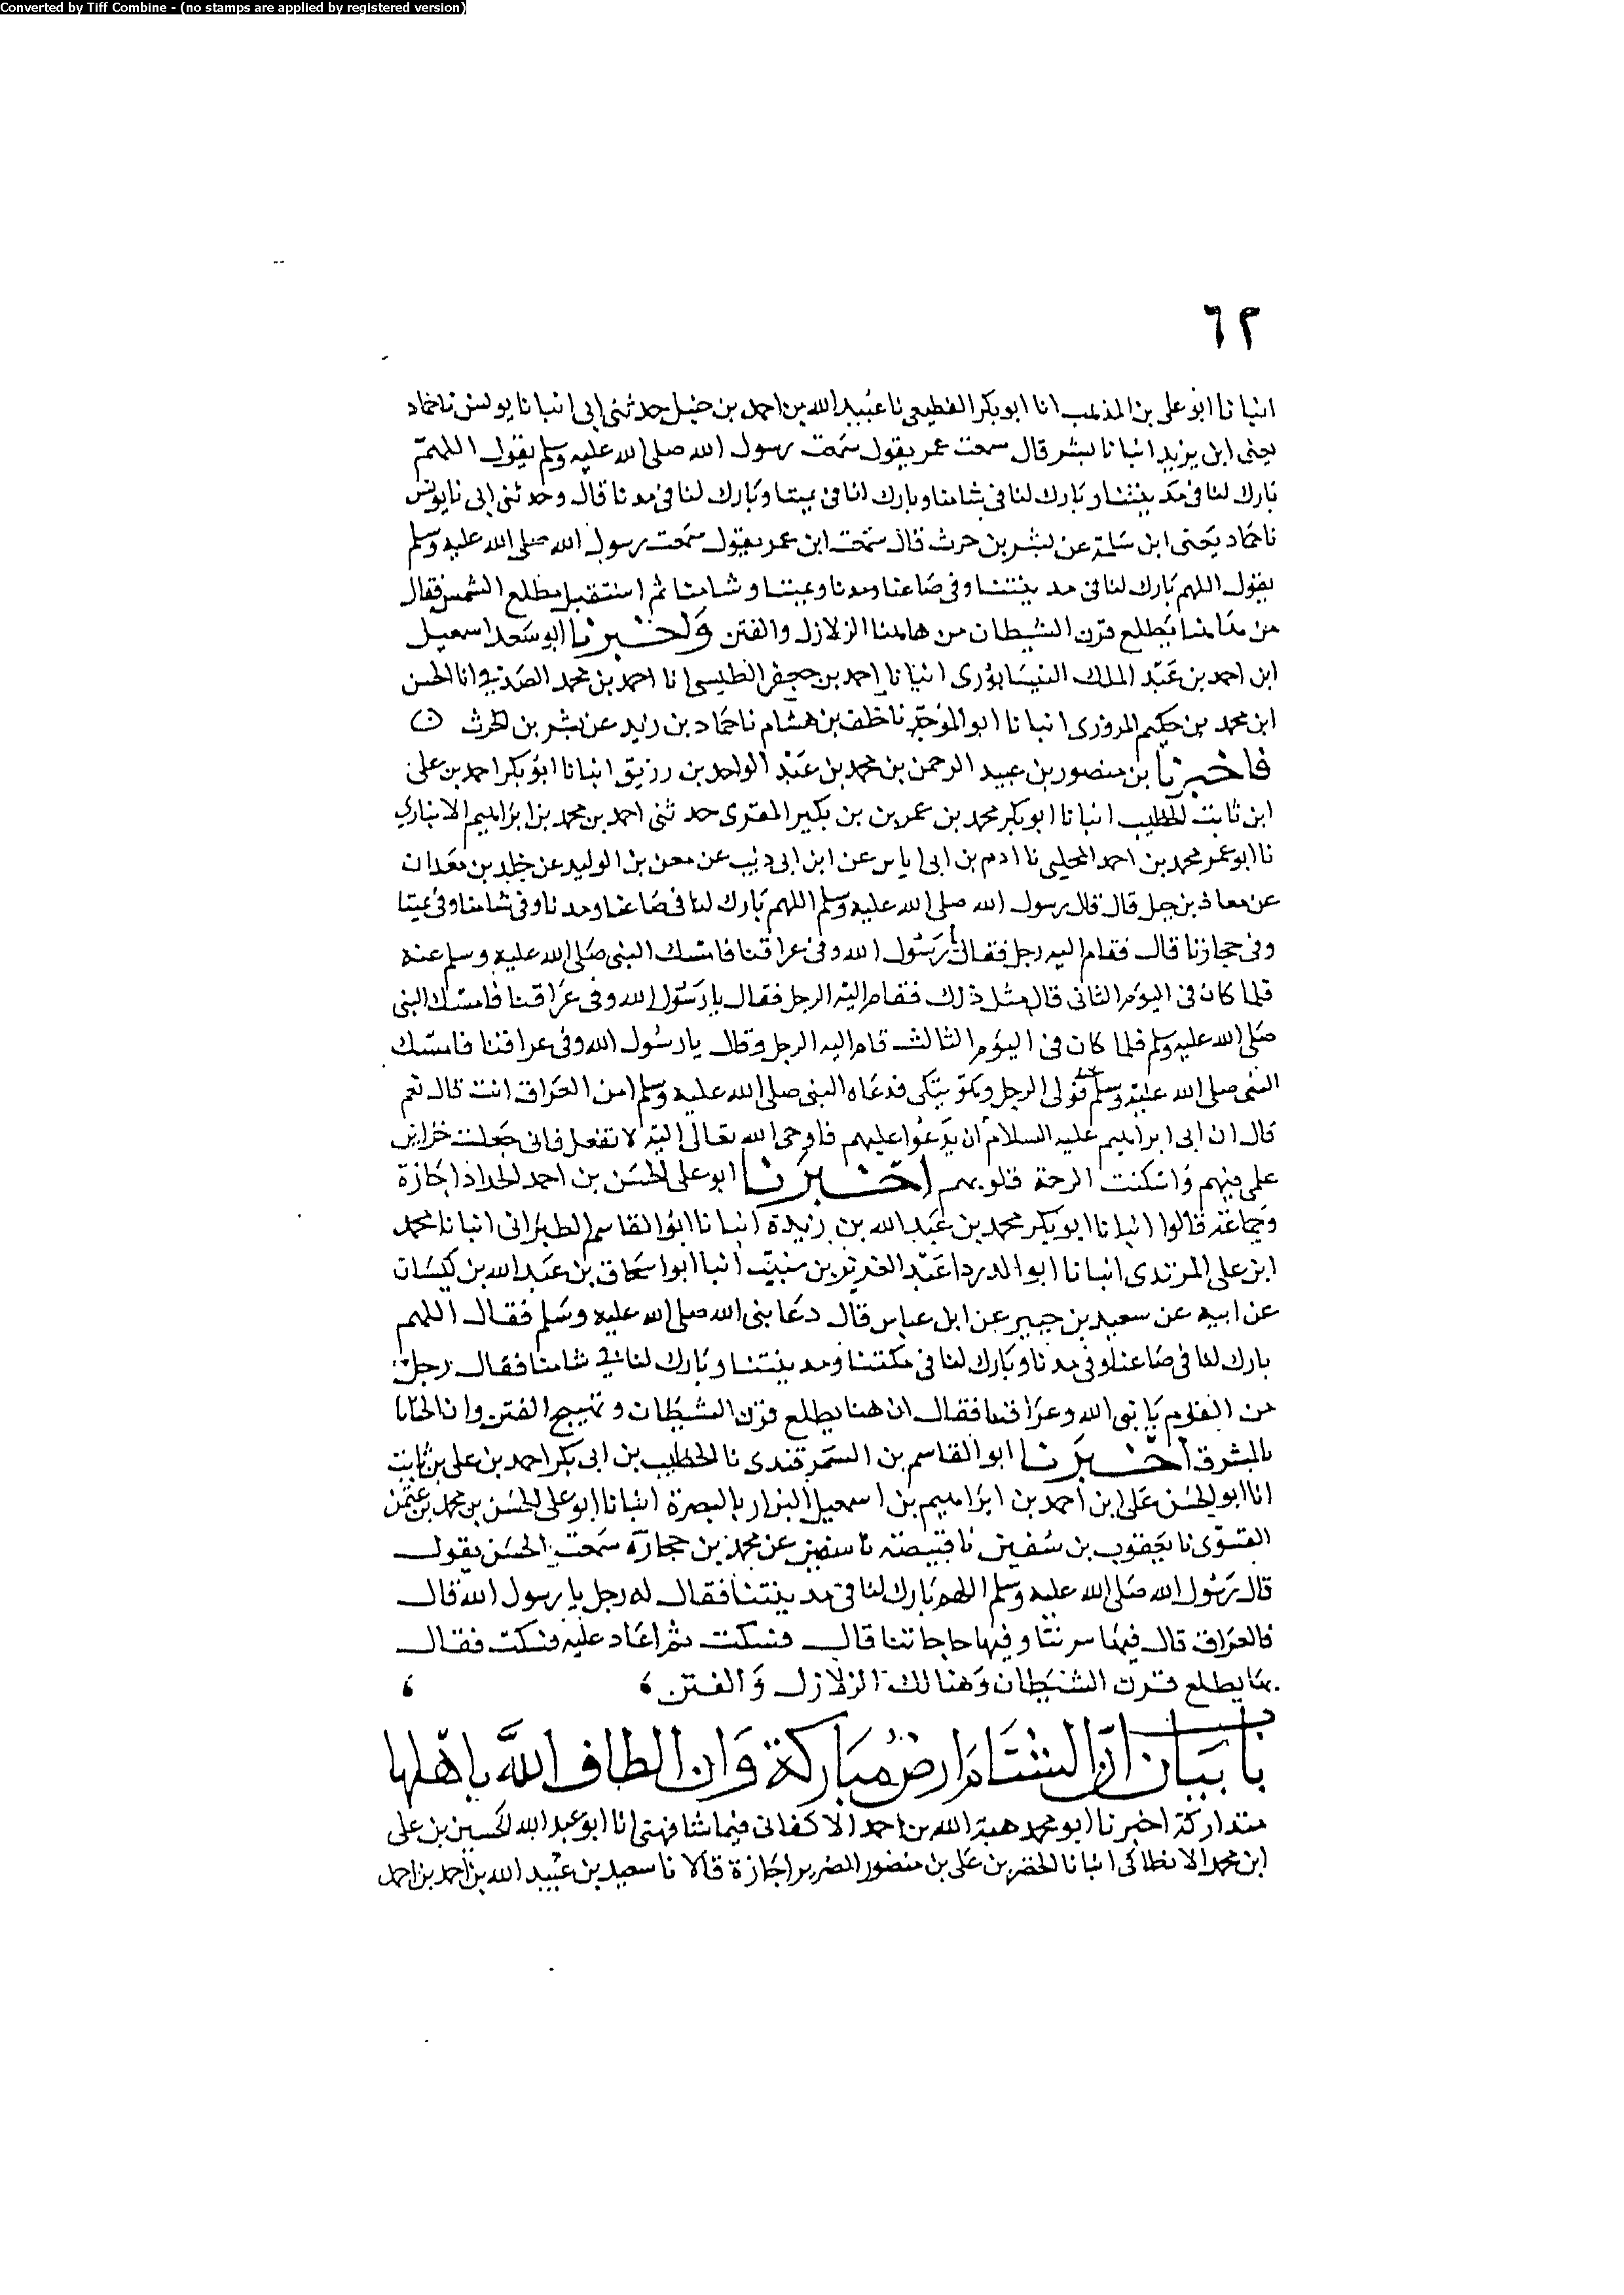 Converted by Tiff Combine - (no stamps are applied by registered version)
٦٢
انبانا ابو على بن المذهب انا ابو بكر القطيعى نا عبيد الله بن احمد بن حنبل حدثنى ابى انبانا يونس نا حماد
يعنى ابن يزيد انبانا بشر قال سمعت عمر يقول سمعت رسول الله صلى الله عليه وسلم يقول اللهم
بارك لنا فى مدينتنا وبارك لنا فى شامنا وبارك لنا فى يمننا وبارك لنا فى مدنا قال وحدثنى ابى نا يونس
نا حماد يعنى ابن سلمة عن بشر بن حرث قال سمعت ابن عمر يقول سمعت رسول الله صلى الله عليه وسلم
يقول اللهم بارك لنا فى مدينتنا وفى صاعنا ومدنا ويمننا وشامنا ثم استقبل مطلع الشمس فقال
من هاهنا يطلع قرن الشيطان من هاهنا الزلازل والفتن واخبرنا ابو سعد اسمعيل
ابن احمد بن عبد الملك النيسابورى انبانا احمد بن جعفر الطبسى انا احمد بن محمد الصدفى انا الحسن
ابن محمد بن حكيم المروزى انبانا ابو الموجه نا خلف بن هشام نا حماد بن زيد عن بشر بن الحرث
فاخبرنا بن منصور بن عبيد الرحمن بن محمد بن عبد الواحد بن رزيق انبانا ابو بكر احمد بن على
ابن ثابت الخطيب انبانا ابو بكر محمد بن عمر بن بن بكير المقرى حدثنى احمد بن محمد بن ابراهيم الانباري
نا ابو عمر محمد بن احمد الحليمى نا ادم بن ابى اياس عن ابن ابى ذيب عن معن بن الوليد عن خالد بن معدان
عن معاذ بن جبل قال قال رسول الله صلى الله عليه وسلم اللهم بارك لنا فى صاعنا ومدنا وفى شامنا وفى يمننا
وفى حجازنا قال فقام اليه رجل فقال يا رسول الله وفى عراقنا فامسك النبى صلى الله عليه وسلم عنه
فلما كان فى اليوم الثانى قال مثل ذلك فقام اليه الرجل فقال يا رسول الله وفى عراقنا فامسك النبى
صلى الله عليه وسلم فلما كان فى اليوم الثالث قام اليه الرجل وقال يا رسول الله وفى عراقنا فامسك
النبى صلى الله عليه وسلم فولى الرجل وهو يبكى فدعاه النبى صلى الله عليه وسلم امن العراق انت قال نعم
قال ان ابى ابراهيم عليه السلام ان يدعوا عليهم فاوحى الله تعالى اليه لا تفعل فانى جعلت خزاين
علمى فيهم واسكنت الرحمة قلوبهم اخبرنا ابو على الحسن بن احمد الحداد اجازة
وجماعة قالوا انبانا ابو بكر محمد بن عبد الله بن زيدة انبانا ابو القاسم الطبرانى انبانا محمد
ابن على المرثدى انبانا ابو الدردا عبد العزيز بن منيب انبا ابو اسحاق بن عبد الله بن كيسان
عن ابيه عن سعيد بن جبير عن ابن عباس قال دعا بنى الله صلى الله عليه وسلم فقال اللهم
بارك لنا فى صاعنا وفى مدنا وبارك لنا فى مكتنا ومدينتنا وبارك لنا في شامنا فقال رجل
من القوم يا نبى الله وعراقنا فقال ان هنا يطلع قرن الشيطان وتهيج الفتن وان الجفا
بالمشرق اخبرنا ابو القاسم بن السمرقندى نا الخطيب بن ابى بكر احمد بن على بن ثابت
انا ابو الحسن على ابن احمد بن ابراهيم بن اسمعيل البزار بالبصرة انبانا ابو على الحسن بن محمد بن عثمن
الفسوى نا يعقوب بن سفين نا قبيصة نا سفين عن محمد بن جحادة سمعت الحسن يقول
قال رسول الله صلى الله عليه وسلم اللهم بارك لنا فى مدينتنا فقال له رجل يا رسول الله قال
فالعراق قال فيها ميرتنا وفيها حاجاتنا قال فسكت ثم اعاد عليه فسكت فقال
بها يطلع قرن الشيطان وهنالك الزلازل والفتن
باب بيان ان الشام ارض مباركة وان الطاف الله باهلها
متداركة اخبرنا ابو محمد هبة الله بن احمد الاكفانى فيما شافهنى انا ابو عبد الله الحسين بن على
ابن محمد الانطاكى انبانا الخضر بن على بن منصور الضرير اجازة قالا نا سعيد بن عبيد الله بن احمد بن احمد